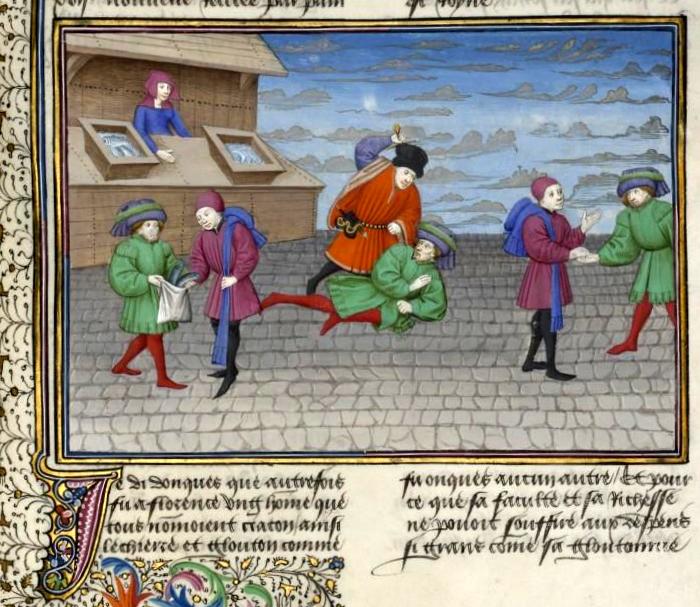 Je di donques que autrefois
fu a florence ung home que
tous nomoient ciacon ainsi
lechierre et glouton comme
fu onques aucun autre / Et pour
ce que sa faculte et sa Richesse
ne povoit souffire aux despens
si grans come sa gloutonnie